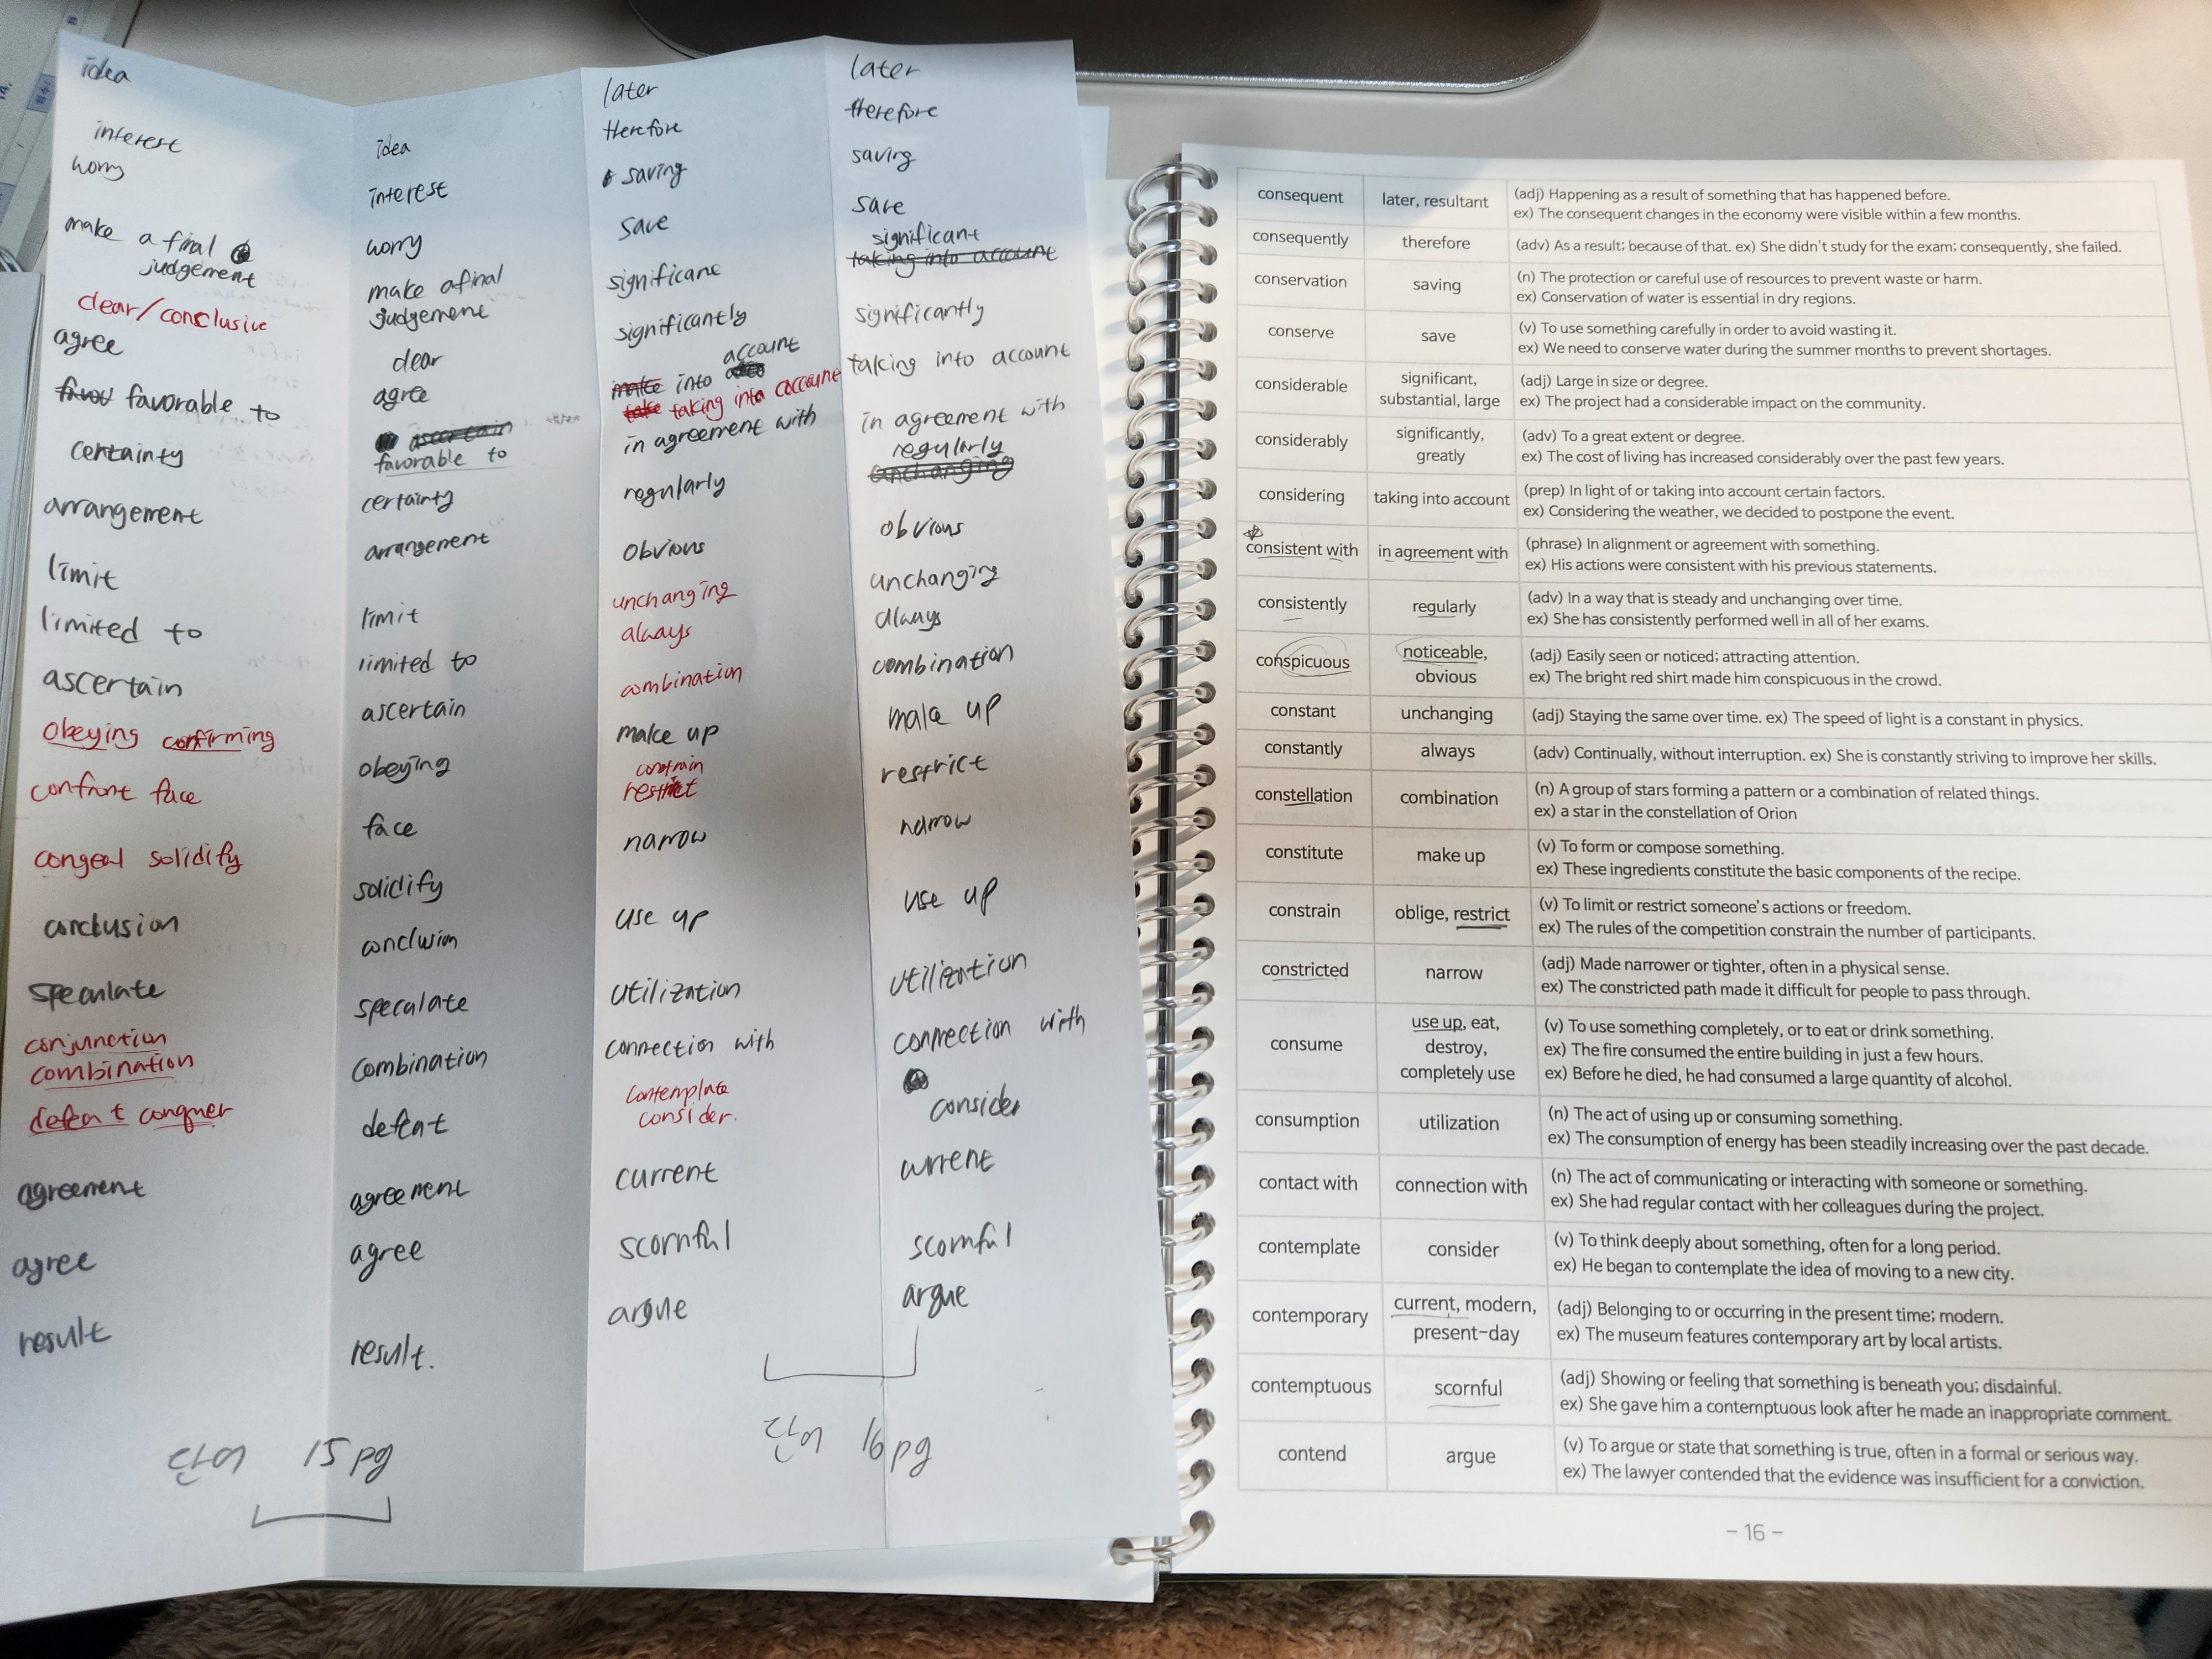 idea
interest
worry
make a final
judgement
clear/conclusive
agree
favor favorable to
certainty
arrangement
limit
limited to
ascertain
obeying confirming
confront face
congeal solidify
conclusion
speculate
conjunction
combination
defeat conquer
agreement
agree
result
idea
interest
worry
make a final
judgement
clear
agree
ascertain
favorable to
certainty
arrangement
limit
limited to
ascertain
obeying
face
solidify
conclusion
speculate
combination
defeat
agreement
agree
result.
단어 15pg
later
therefore
saving
save
significane
significantly
account
make into
take taking into account
in agreement with
regularly
obvious
unchanging
always
combination
make up
constrain
restrict
narrow
use up
utilization
connection with
contemplate
consider.
current
scornful
argue
later
therefore
saving
save
significant
taking into account
significantly
taking into account
in agreement with
regularly
unchanging
obvious
unchanging
always
combination
make up
restrict
narrow
use up
utilization
connection with
consider
current
scornful
argue
단어 16pg
consequent
later, resultant
(adj) Happening as a result of something that has happened before.
ex) The consequent changes in the economy were visible within a few months.
consequently
therefore
(adv) As a result; because of that. ex) She didn't study for the exam; consequently, she failed.
conservation
saving
(n) The protection or careful use of resources to prevent waste or harm.
ex) Conservation of water is essential in dry regions.
conserve
save
(v) To use something carefully in order to avoid wasting it.
ex) We need to conserve water during the summer months to prevent shortages.
considerable
significant,
substantial, large
(adj) Large in size or degree.
ex) The project had a considerable impact on the community.
considerably
significantly,
greatly
(adv) To a great extent or degree.
ex) The cost of living has increased considerably over the past few years.
considering
taking into account
(prep) In light of or taking into account certain factors.
ex) Considering the weather, we decided to postpone the event.
consistent with
in agreement with
(phrase) In alignment or agreement with something.
ex) His actions were consistent with his previous statements.
consistently
regularly
(adv) In a way that is steady and unchanging over time.
ex) She has consistently performed well in all of her exams.
conspicuous
noticeable,
obvious
(adj) Easily seen or noticed; attracting attention.
ex) The bright red shirt made him conspicuous in the crowd.
constant
unchanging
(adj) Staying the same over time. ex) The speed of light is a constant in physics.
constantly
always
(adv) Continually, without interruption. ex) She is constantly striving to improve her skills.
constellation
combination
(n) A group of stars forming a pattern or a combination of related things.
ex) a star in the constellation of Orion
constitute
make up
(v) To form or compose something.
ex) These ingredients constitute the basic components of the recipe.
constrain
oblige, restrict
(v) To limit or restrict someone's actions or freedom.
ex) The rules of the competition constrain the number of participants.
constricted
narrow
(adj) Made narrower or tighter, often in a physical sense.
ex) The constricted path made it difficult for people to pass through.
consume
use up, eat,
destroy,
completely use
(v) To use something completely, or to eat or drink something.
ex) The fire consumed the entire building in just a few hours.
ex) Before he died, he had consumed a large quantity of alcohol.
consumption
utilization
(n) The act of using up or consuming something.
ex) The consumption of energy has been steadily increasing over the past decade.
contact with
connection with
(n) The act of communicating or interacting with someone or something.
ex) She had regular contact with her colleagues during the project.
contemplate
consider
(v) To think deeply about something, often for a long period.
ex) He began to contemplate the idea of moving to a new city.
contemporary
current, modern,
present-day
(adj) Belonging to or occurring in the present time; modern.
ex) The museum features contemporary art by local artists.
contemptuous
scornful
(adj) Showing or feeling that something is beneath you; disdainful.
ex) She gave him a contemptuous look after he made an inappropriate comment.
contend
argue
(v) To argue or state that something is true, often in a formal or serious way.
ex) The lawyer contended that the evidence was insufficient for a conviction.
- 16 -